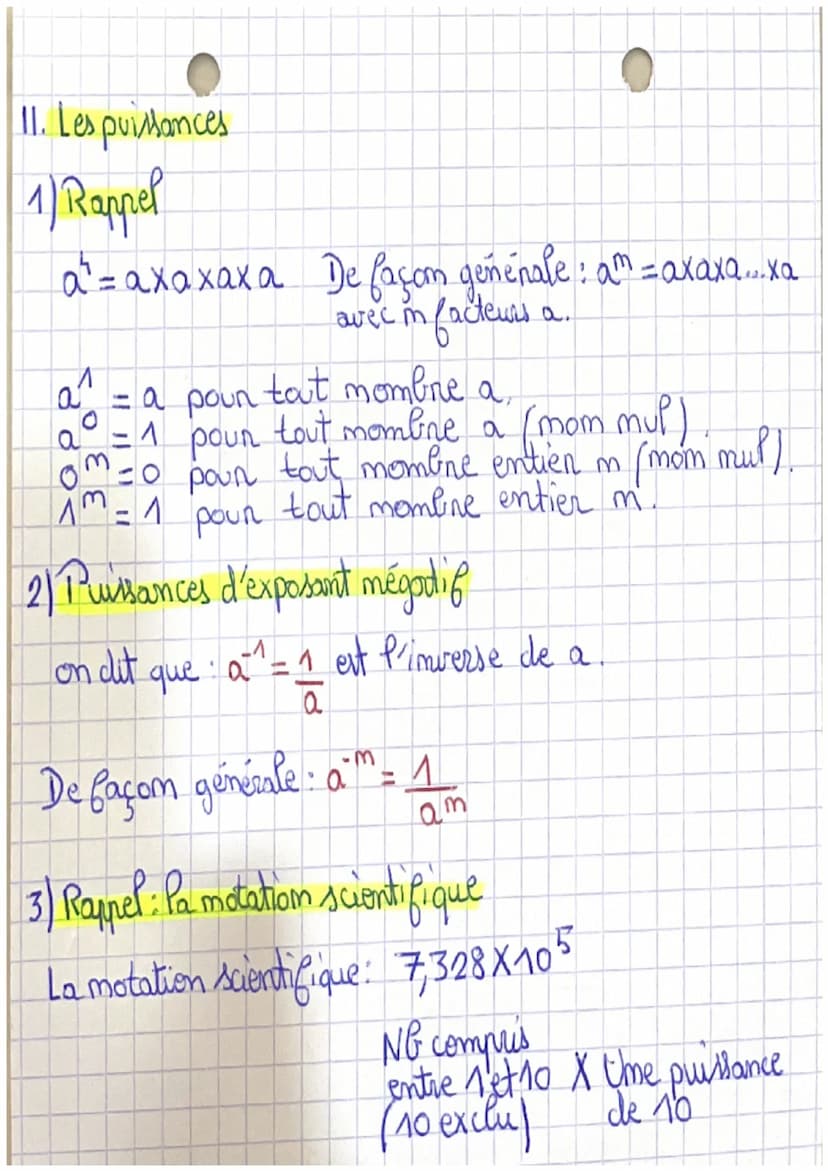 II. Les puissances
1) Rappel
a⁴ = a x a x a x a De façon générale : aⁿ = a x a x a ... x a
avec n facteurs a.
a¹ = a pour tout nombre a.
a⁰ = 1 pour tout nombre a (non nul).
0ⁿ = 0 pour tout nombre entier n (non nul).
1ⁿ = 1 pour tout nombre entier n.
2) Puissances d'exposant négatif
on dit que : a⁻¹ = 1/a est l'inverse de a.
De façon générale : a⁻ⁿ = 1/aⁿ
3) Rappel : la notation scientifique
La notation scientifique : 7,328 X 10⁵
Nb compris
entre 1 et 10 X Une puissance
(10 exclu) de 10